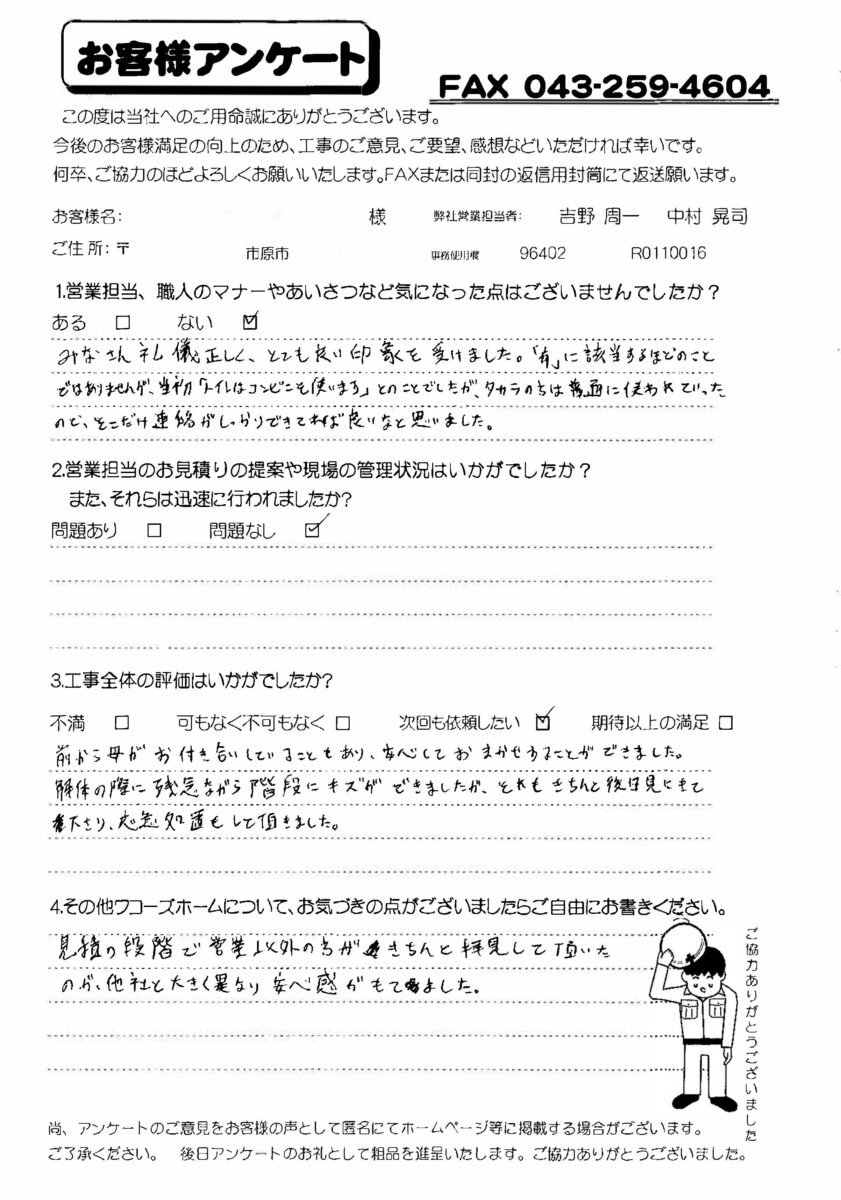 お客様アンケート
FAX 043-259-4604
この度は当社へのご用命誠にありがとうございます。
今後のお客様満足の向上のため、工事のご意見、ご要望、感想などいただければ幸いです。
何卒、ご協力のほどよろしくお願いいたします。FAXまたは同封の返信用封筒にて返送願います。
お客様名: 様 弊社営業担当者: 吉野 周一 中村 晃司
ご住所:〒 市原市 事務使用欄 96402 R0110016
1.営業担当、職人のマナーやあいさつなど気になった点はございませんでしたか?
ある □ ない ☑
みなさん礼儀正しく、とても良い印象を受けました。「有」に該当するほどのこと
ではありませんが、当初「トイレはコンビニを使います」とのことでしたが、タカラの方は普通に使われていった
ので、そこだけ連絡がしっかりできてれば良いなと思いました。
2.営業担当のお見積りの提案や現場の管理状況はいかがでしたか?
また、それらは迅速に行われましたか?
問題あり □ 問題なし ☑
3.工事全体の評価はいかがでしたか?
不満 □ 可もなく不可もなく □ 次回も依頼したい ☑ 期待以上の満足 □
前から母がお付き合いしていることもあり、安心しておまかせすることができました。
解体の際に残念ながら階段にキズができましたが、それもきちんと後日見にきて
下さり、応急処置もして頂きました。
4.その他ワコーズホームについて、お気づきの点がございましたらご自由にお書きください。
見積の段階で営業以外の方がきちんと拝見して頂いた
のが、他社と大きく異なり安心感がもてました。
ご協力ありがとうございました
尚、アンケートのご意見をお客様の声として匿名にてホームページ等に掲載する場合がございます。
ご了承ください。 後日アンケートのお礼として粗品を進呈いたします。ご協力ありがとうございました。